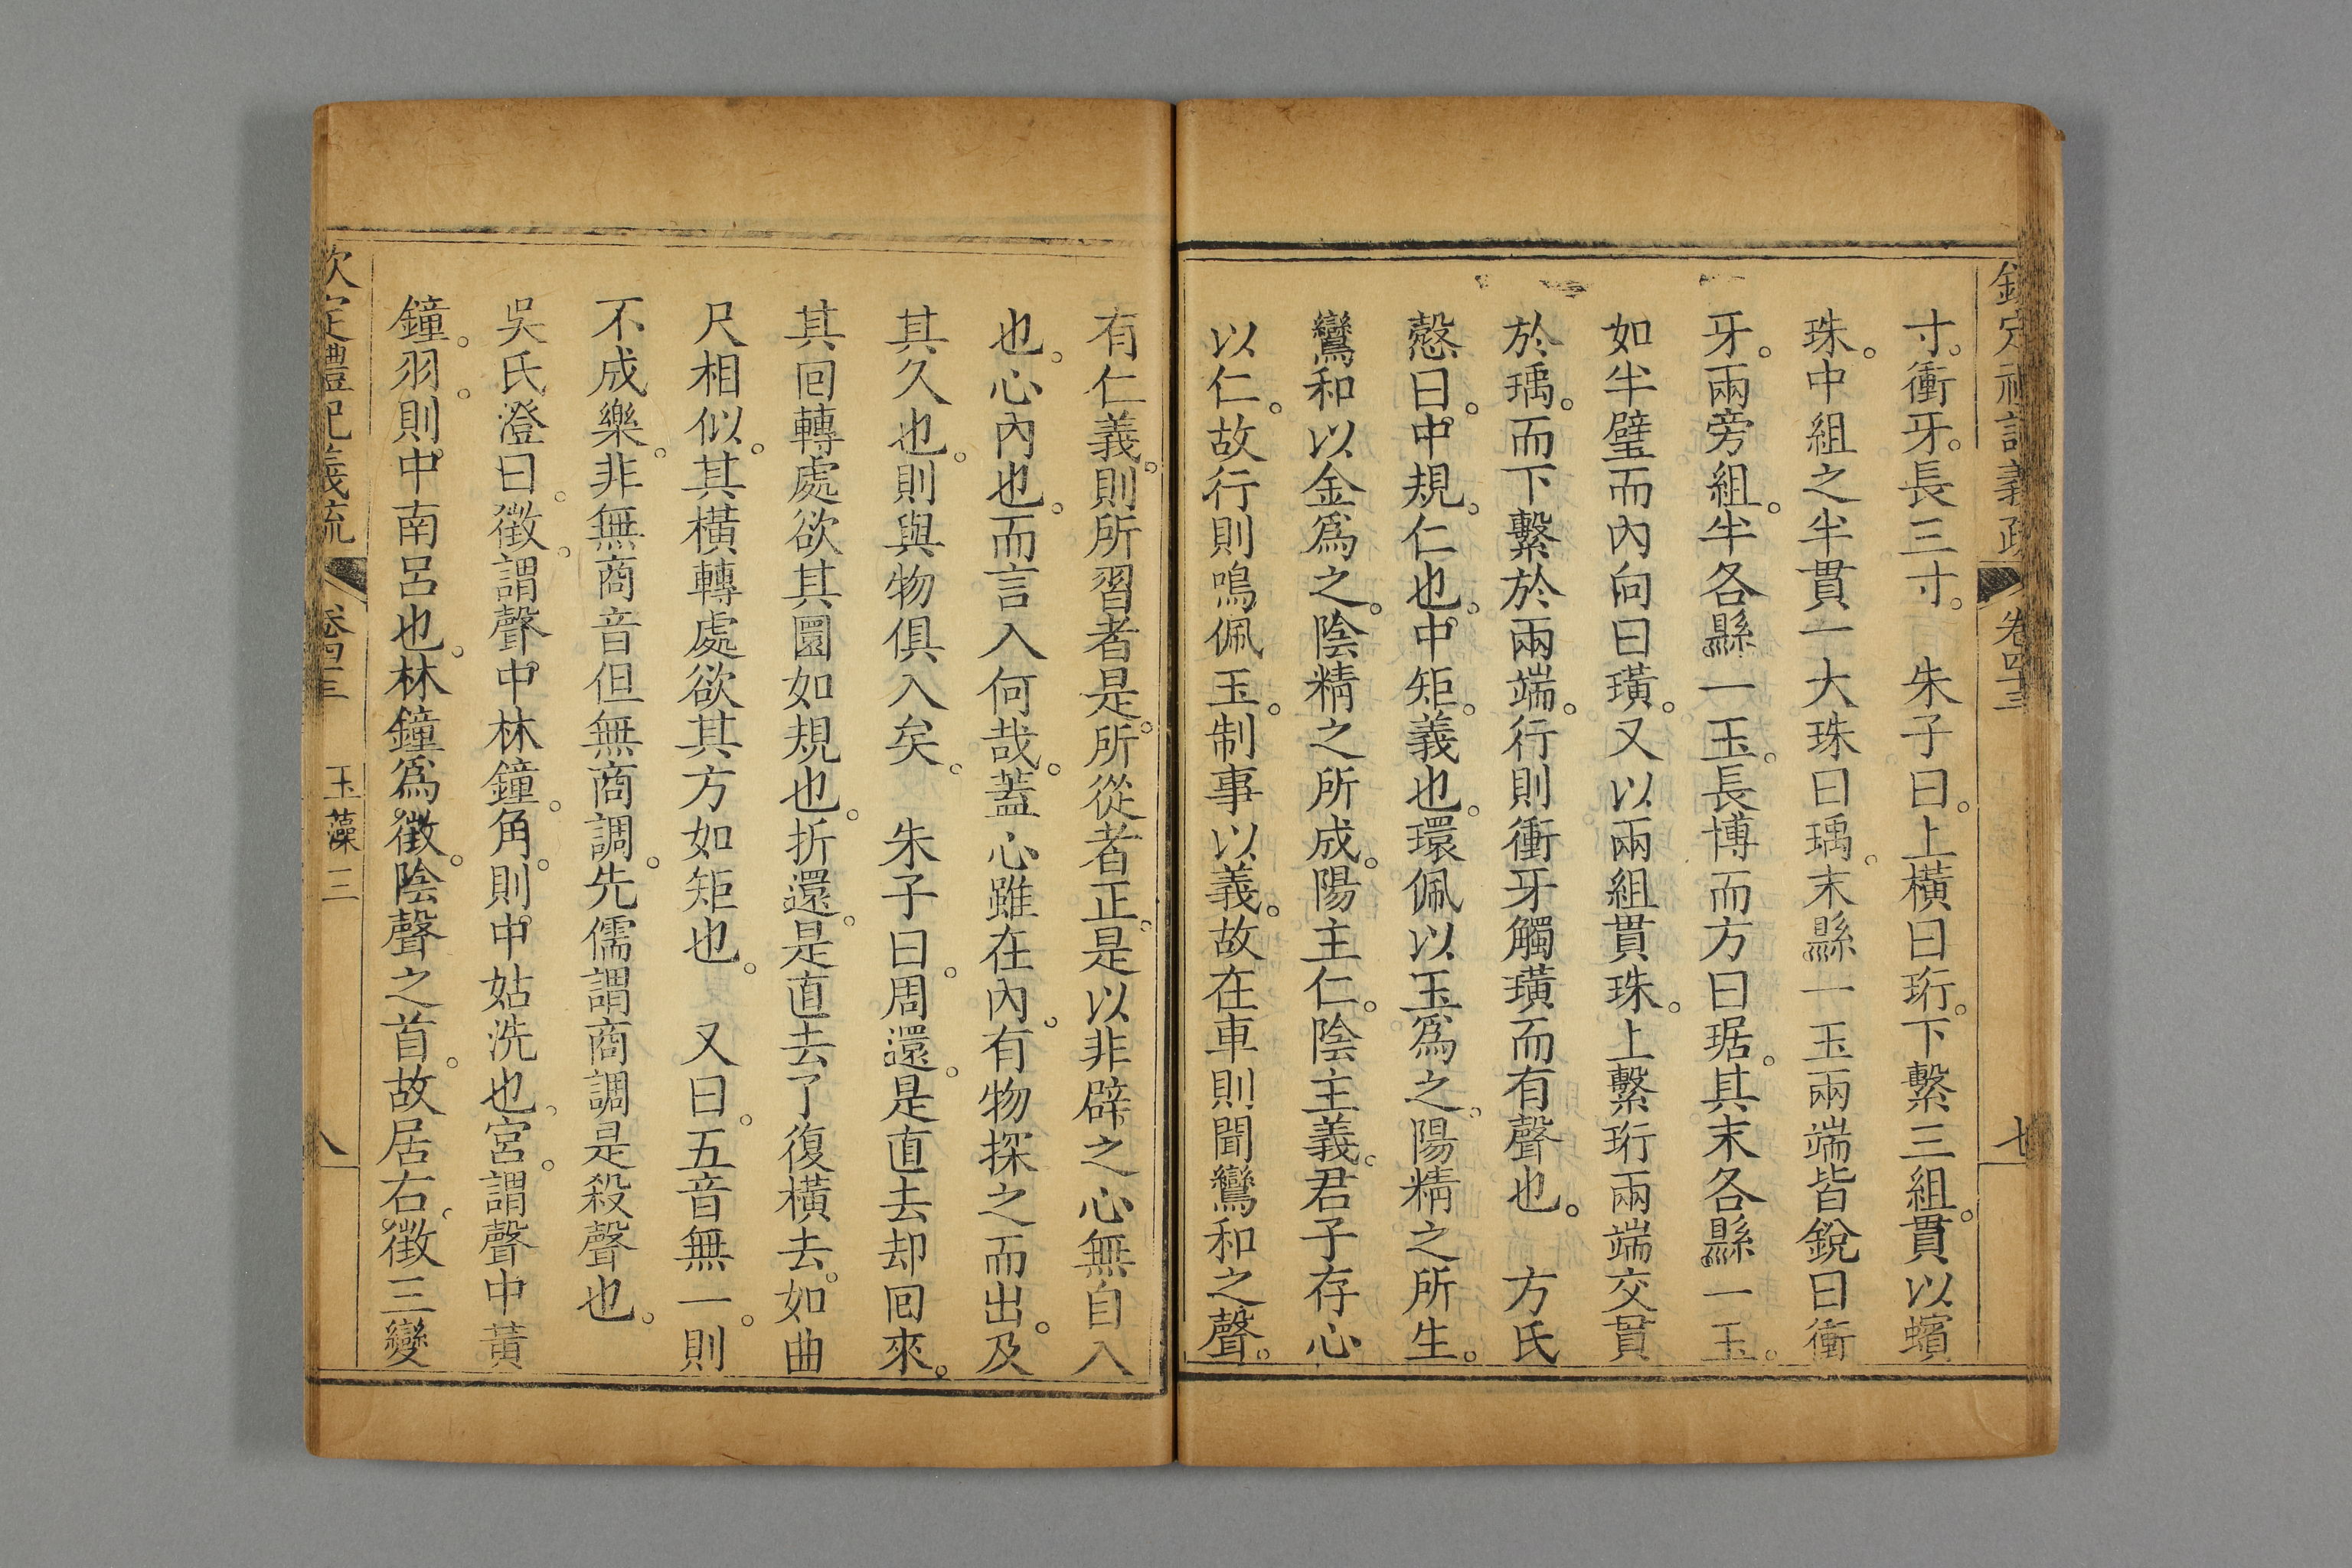 欽定禮記義疏 卷四十三 七
寸。衝牙。長三寸。 朱子曰。上橫曰珩。下繫三組。貫以蠙
珠。中組之半貫一大珠曰瑀。末縣一玉兩端皆銳曰衝
牙。兩旁組。半各縣一玉。長博而方曰琚。其末各縣一玉。
如半璧而內向曰璜。又以兩組貫珠。上繫珩兩端交貫
於瑀。而下繫於兩端。行則衝牙觸璜而有聲也。 方氏
慤曰。中規。仁也。中矩。義也。環佩以玉爲之。陽精之所生。
鸞和以金爲之。陰精之所成。陽主仁。陰主義。君子存心
以仁。故行則鳴佩玉。制事以義。故在車則聞鸞和之聲。
有仁義。則所習者是。所從者正。是以非辟之心無自入
也。心內也。而言入何哉。蓋心雖在內。有物探之而出。及
其久也。則與物俱入矣。 朱子曰。周還。是直去却回來。
其回轉處欲其圜如規也。折還。是直去了復橫去。如曲
尺相似。其橫轉處欲其方如矩也。 又曰。五音無一。則
不成樂。非無商音但無商調。先儒謂商調是殺聲也。
吳氏澄曰。徵。謂聲中林鐘。角。則中姑洗也。宮。謂聲中黃
鐘。羽。則中南呂也。林鐘爲徵。陰聲之首。故居右。徵三變
欽定禮記義疏 卷四十三 玉藻三 八